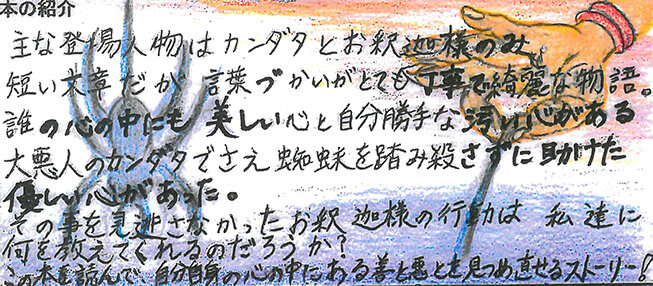 本の紹介
主な登場人物はカンダタとお釈迦様のみ
短い文章だが 言葉づかいがとても丁寧で綺麗な物語。
誰の心の中にも 美しい心と自分勝手な汚い心がある
大悪人のカンダタでさえ 蜘蛛を踏み殺さずに助けた
優しい心があった。
その事を見逃さなかったお釈迦様の行動は 私達に
何を教えてくれるのだろうか?
この本を読んで、自分自身の心の中にある善と悪とを見つめ直せるストーリー!